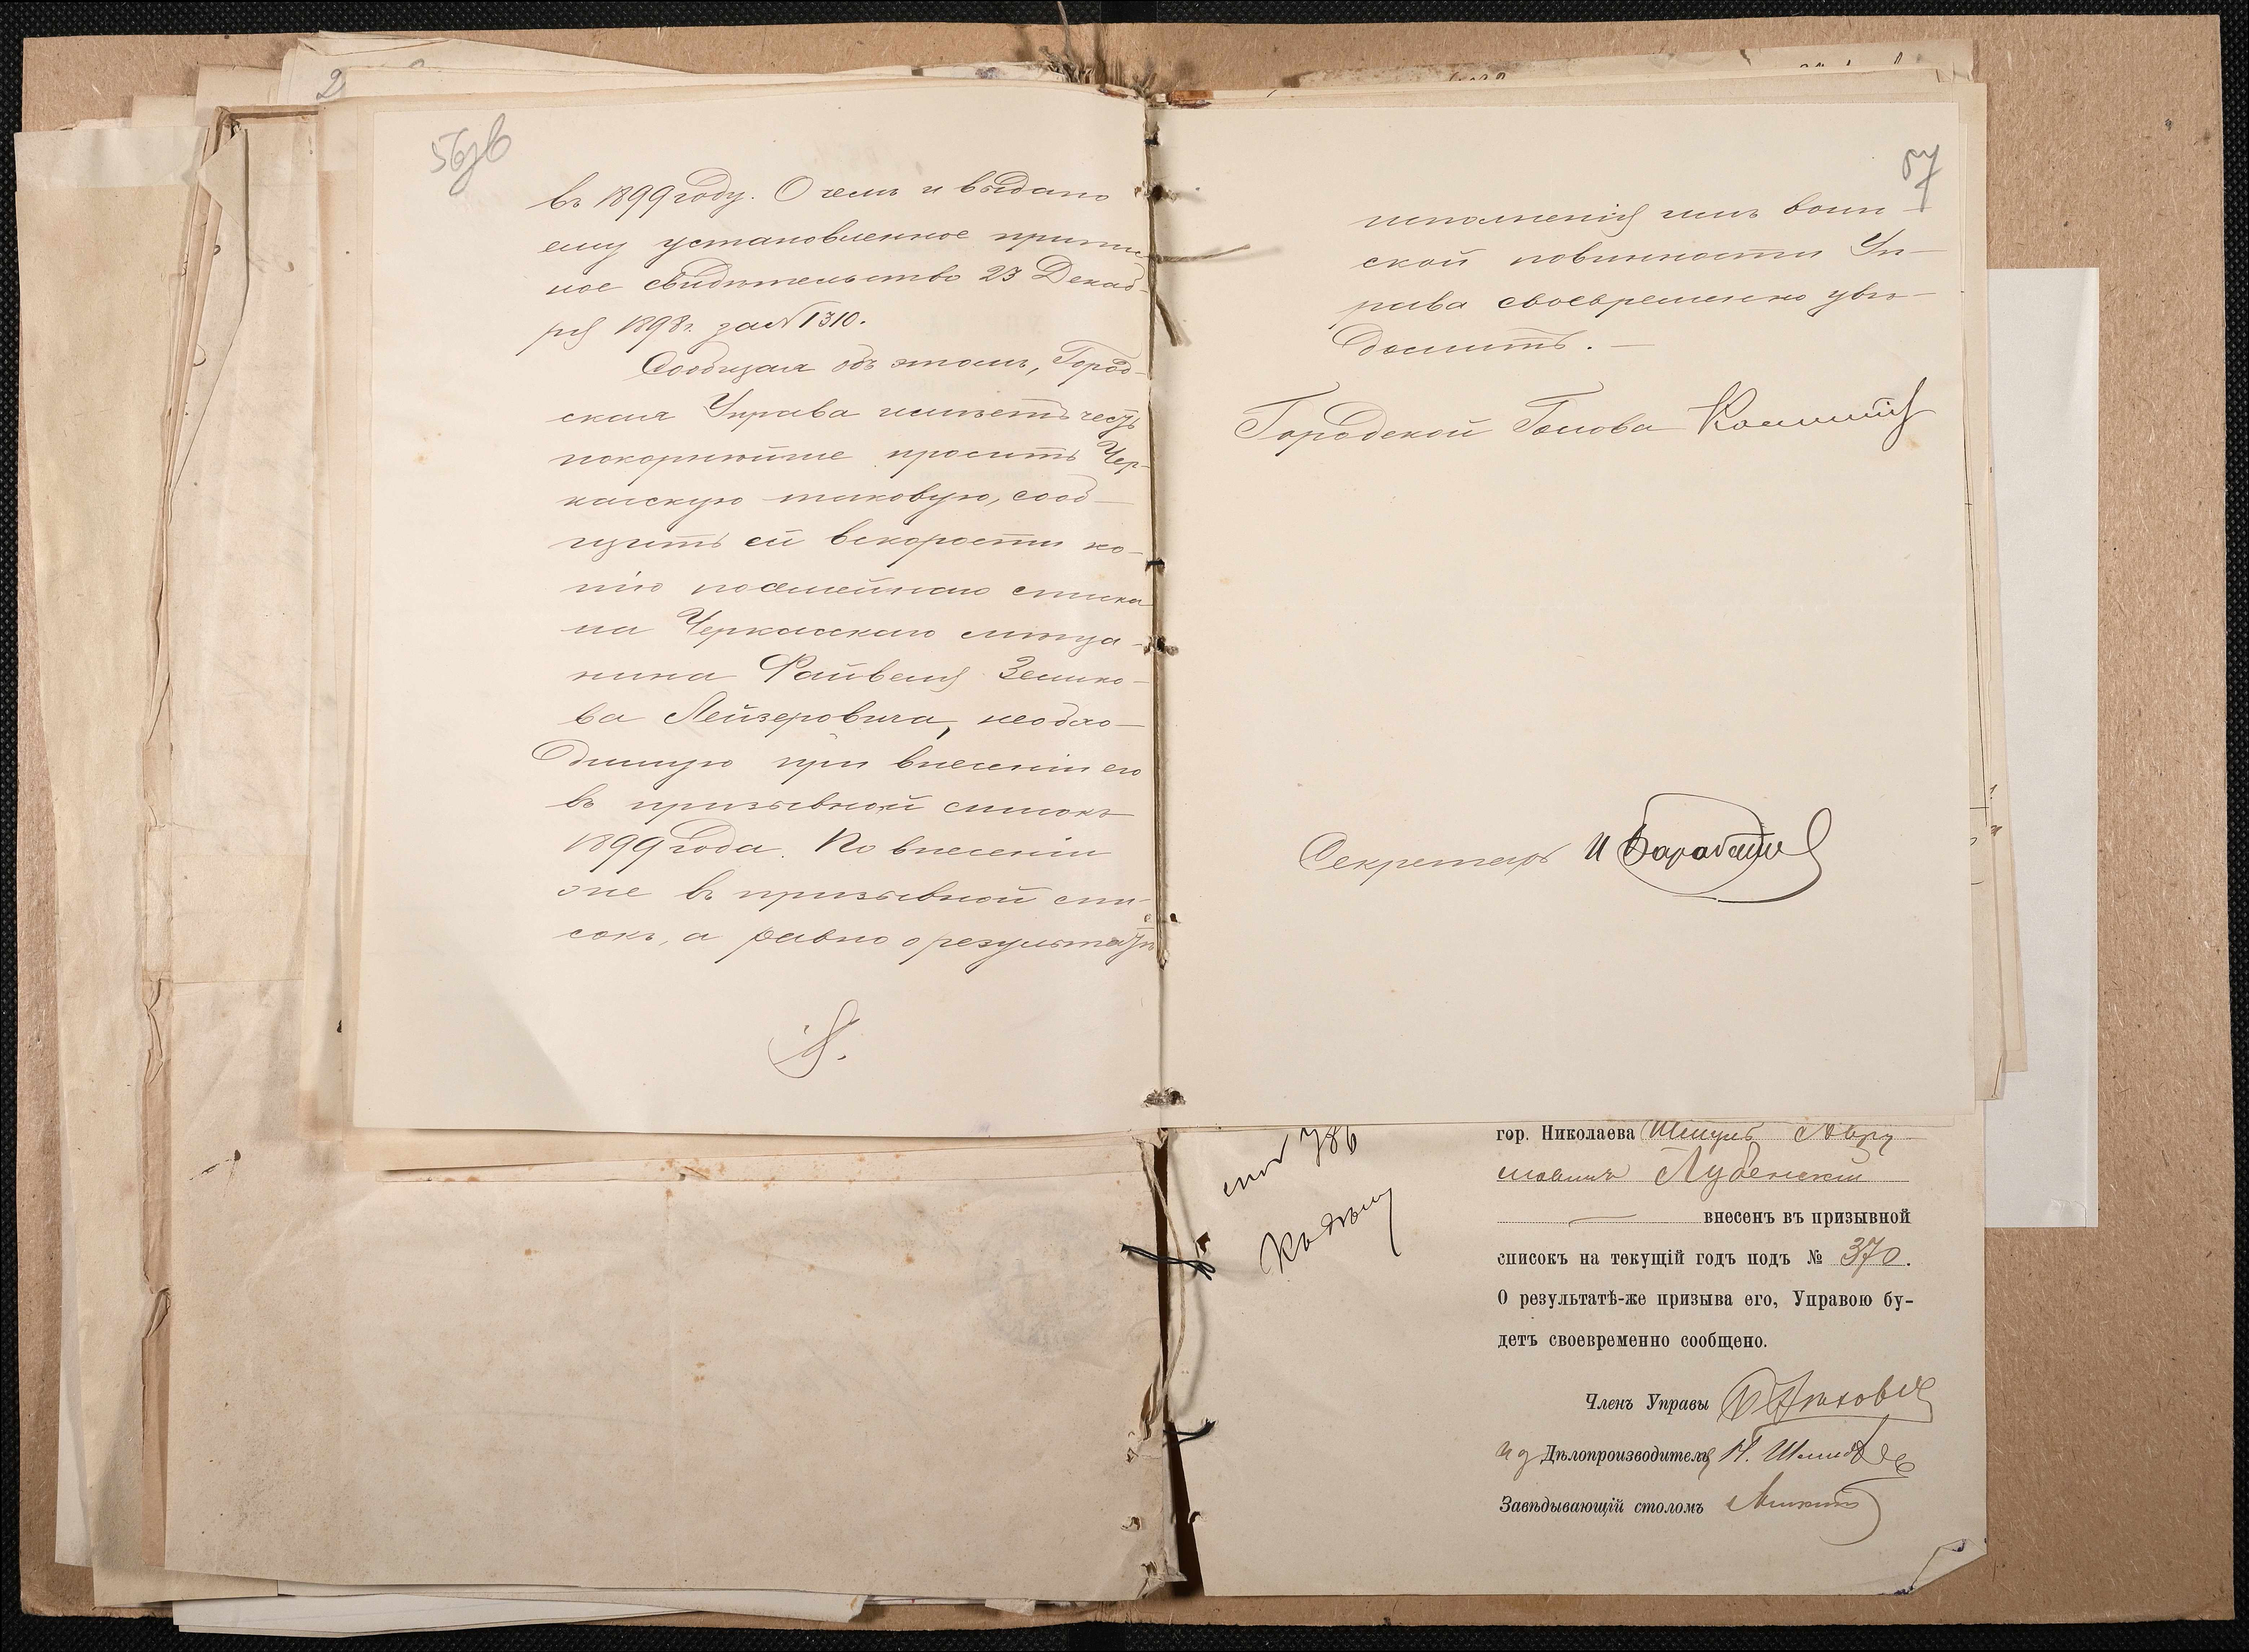 56об
въ 1899 году. О чемъ и выдано
ему установленное приписное
ное свидѣтельство 23 Декаб-
ря 1898 г. за № 1310.
Сообщая объ этомъ, Город-
ская Управа имѣетъ честь
покорнѣйше просить Чер-
касскую таковую, сооб-
щить ей вскорости ко-
пію посемейнаго списка
на Черкасскаго мѣща-
нина Файвеля Зелико-
ва Лейзеровича, необхо-
димую при внесеніи его
въ призывной списокъ
1899 года. По внесеніи
же въ призывной спи-
сокъ, а равно о результатѣ
57
исполненія имъ воин-
ской повинности Уп-
рава своевременно увѣ-
домитъ. —
Городской Голова
Секретарь И Барабаш
гор. Николаева Шмуль Авру
мовичъ Лубенскій
внесенъ въ призывной
списокъ на текущій годъ подъ № 370.
О результатѣ-же призыва его, Управою бу-
детъ своевременно сообщено.
Членъ Управы
И д Дѣлопроизводителя Н.
Завѣдывающій столомъ
786
Къ дѣлу